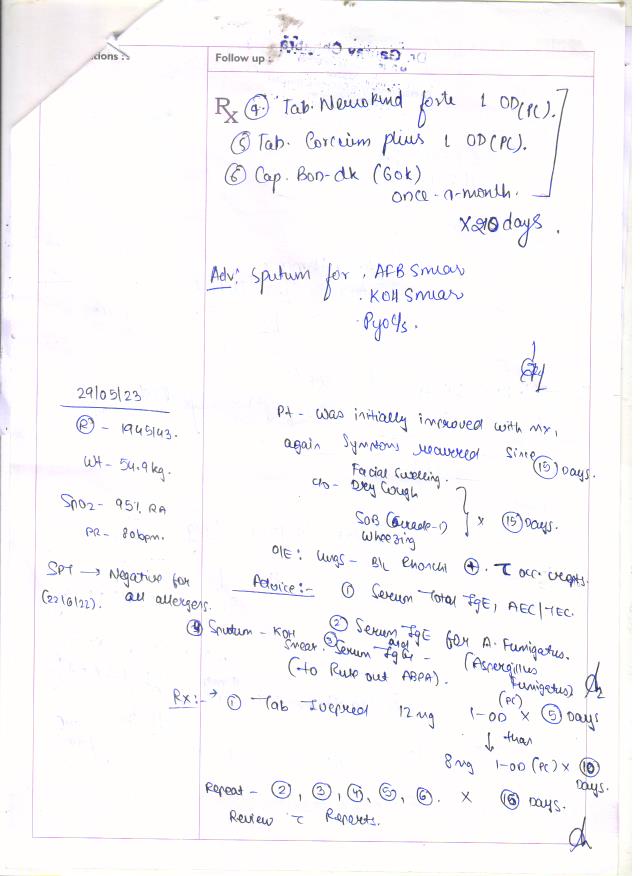 Follow up :
Rx ④. Tab. Neurokind forte 1 OD (PC).
⑤ Tab. Corcium plus 1 OD (PC).
⑥ Cap. Bon-dk (60k)
once-a-month.
x 20 days.
Adv: Sputum for . AFB Smear
. KOH Smear
. Pyo c/s.
29/05/23
R - 1945143.
Wt - 54.9 kg.
SpO2 - 95% RA
PR - 80 bpm.
SPT → Negative for
(22/6/22). all allergens.
Pt - was initially improved with Mx,
again symptoms recurred since
⑮ Days.
Facial Swelling.
c/o - Dry Cough
SOB (Grade-1) x ⑮ Days.
Wheezing
O/E: Lungs - B/L Rhonchi ⊕. c occ. crepts.
Advice :- ① Serum Total IgE, AEC/TEC.
② Serum IgE for A. Fumigatus.
③ Serum IgG - (Aspergillus
Fumigatus)
(to Rule out ABPA).
④ Sputum - KOH
Smear.
Rx :- → ① Tab 12 mg 1-OD (PC) x ⑤ Days
↓ than
8 mg 1-OD (PC) x ⑩
Days.
Repeat - ②, ③, ④, ⑤, ⑥. x ⑮ Days.
Review c Reports.